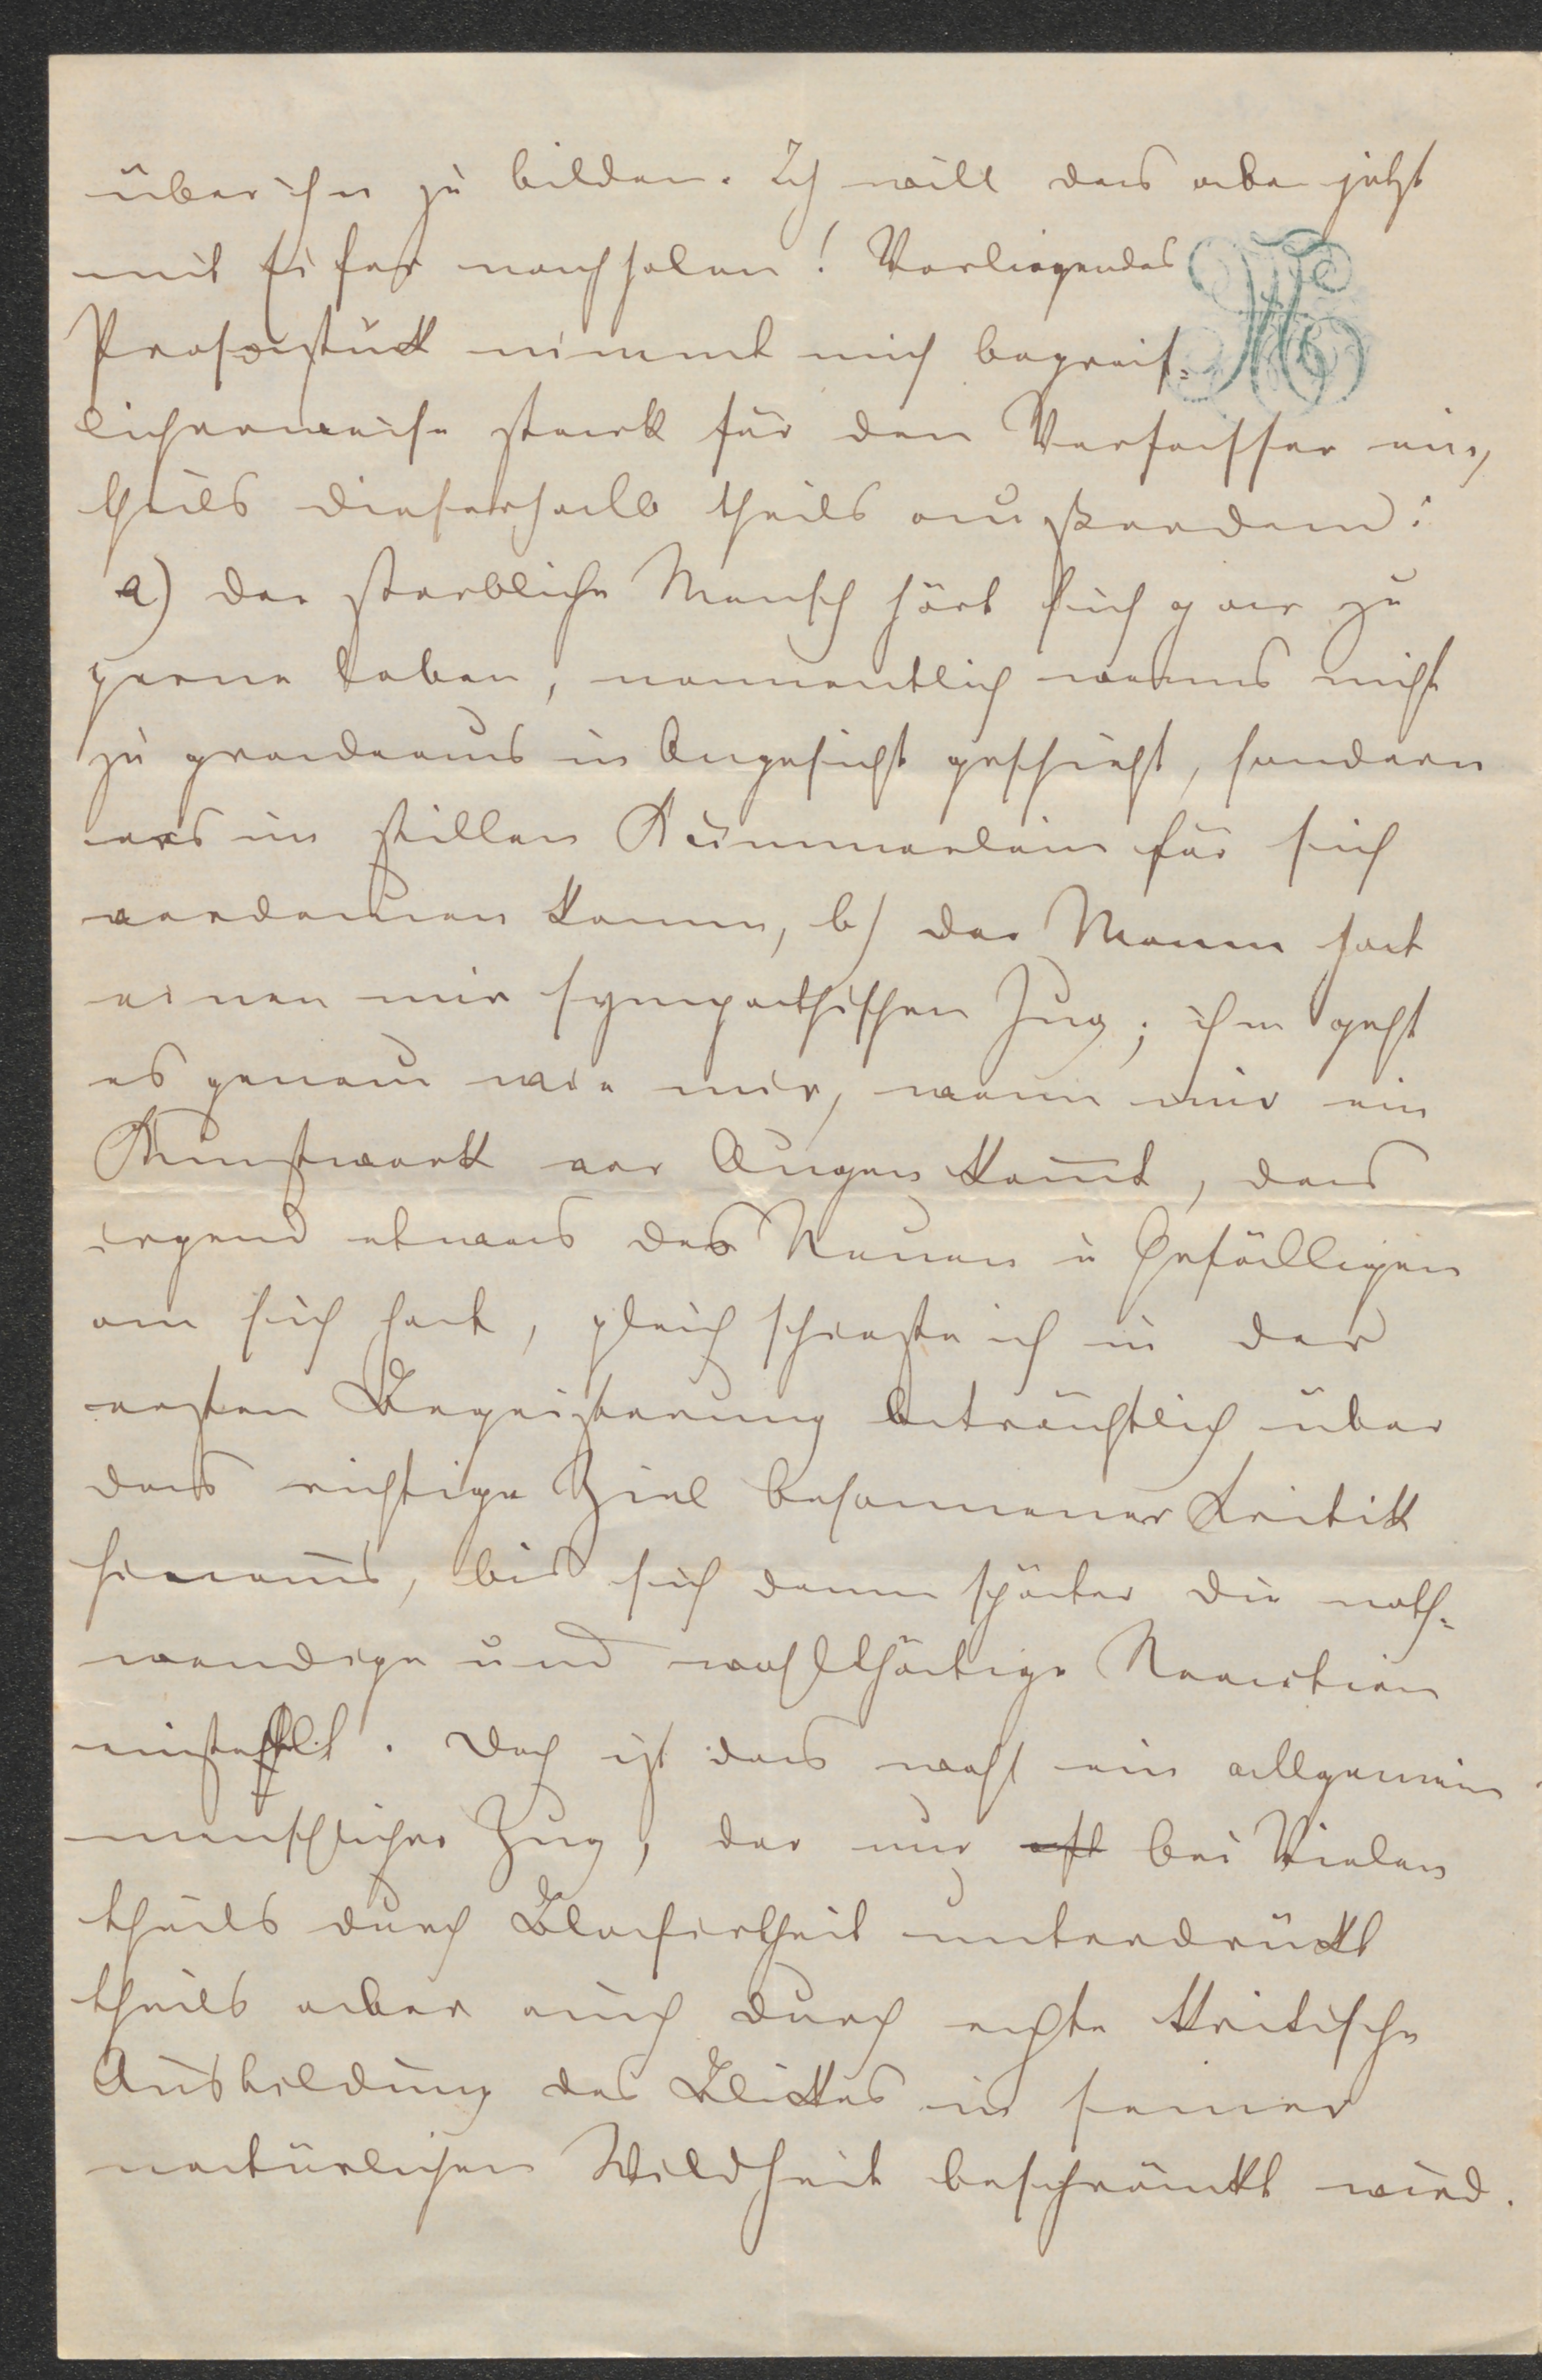 über ihn zu bilden. Ich will das aber jetzt
mit Eifer nachholen! Vorliegendes
Prosastück nimmt mich begreif-
licherweise stark für den Verfasser ein,
theils dieserhalb theils außerdem:
a) der sterbliche Mensch hört sich gar zu
gerne loben, namentlich wenns nicht
zu gradeaus in Angesicht geschieht, sondern
ers im stillen Kämmerlein für sich
verdauen kann, b) der Mann hat
einen mir sympathischen Zug; ihm geht
es genau wie mir, wenn mir ein
Kunstwerk vor Augen kom̅t, das
irgend etwas des Neuen u Gefälligen
an sich hat, gleich schieße ich in der
ersten Begeisterung beträchtlich über
das richtige Ziel besonnener Kritik
hinaus, bis sich dann später die noth-
wendige und wohlthätige Reaction
einstellt. Doch ist das wohl ein allgemein
menschlicher Zug, der nur oft bei Vielen
theils durch Blasirtheit unterdrückt
theils aber auch durch echte kritische
Ausbildung des Blickes in seiner
natürlichen Wildheit beschränkt wird.